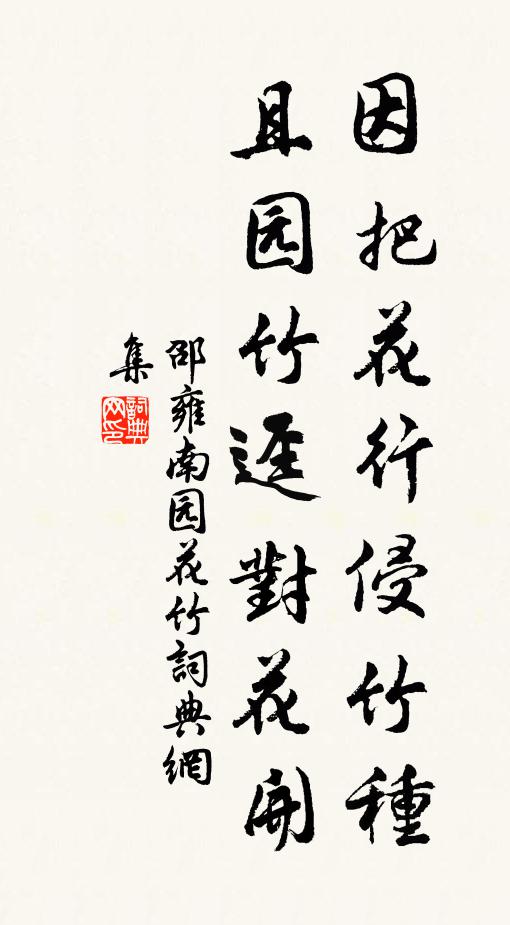 因把花行侵竹種
且园竹逕對花開
邵雍南园花竹詞典網
集
詞典網印